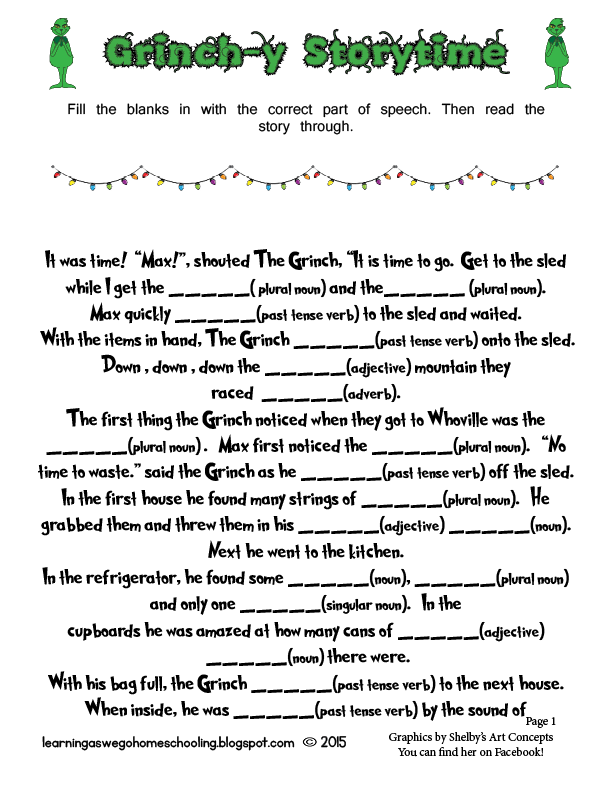 Grinch-y Storytime
Fill the blanks in with the correct part of speech. Then read the
story through.
It was time! "Max!", shouted The Grinch, "It is time to go. Get to the sled
while I get the _____( plural noun) and the_____ (plural noun).
Max quickly _____(past tense verb) to the sled and waited.
With the items in hand, The Grinch _____(past tense verb) onto the sled.
Down , down , down the _____(adjective) mountain they
raced _____(adverb).
The first thing the Grinch noticed when they got to Whoville was the
_____(plural noun) . Max first noticed the _____(plural noun). "No
time to waste." said the Grinch as he _____(past tense verb) off the sled.
In the first house he found many strings of _____(plural noun). He
grabbed them and threw them in his _____(adjective) _____(noun).
Next he went to the kitchen.
In the refrigerator, he found some _____(noun), _____(plural noun)
and only one _____(singular noun). In the
cupboards he was amazed at how many cans of _____(adjective)
_____(noun) there were.
With his bag full, the Grinch _____(past tense verb) to the next house.
When inside, he was _____(past tense verb) by the sound of
Page 1
learningaswegohomeschooling.blogspot.com © 2015
Graphics by Shelby's Art Concepts
You can find her on Facebook!